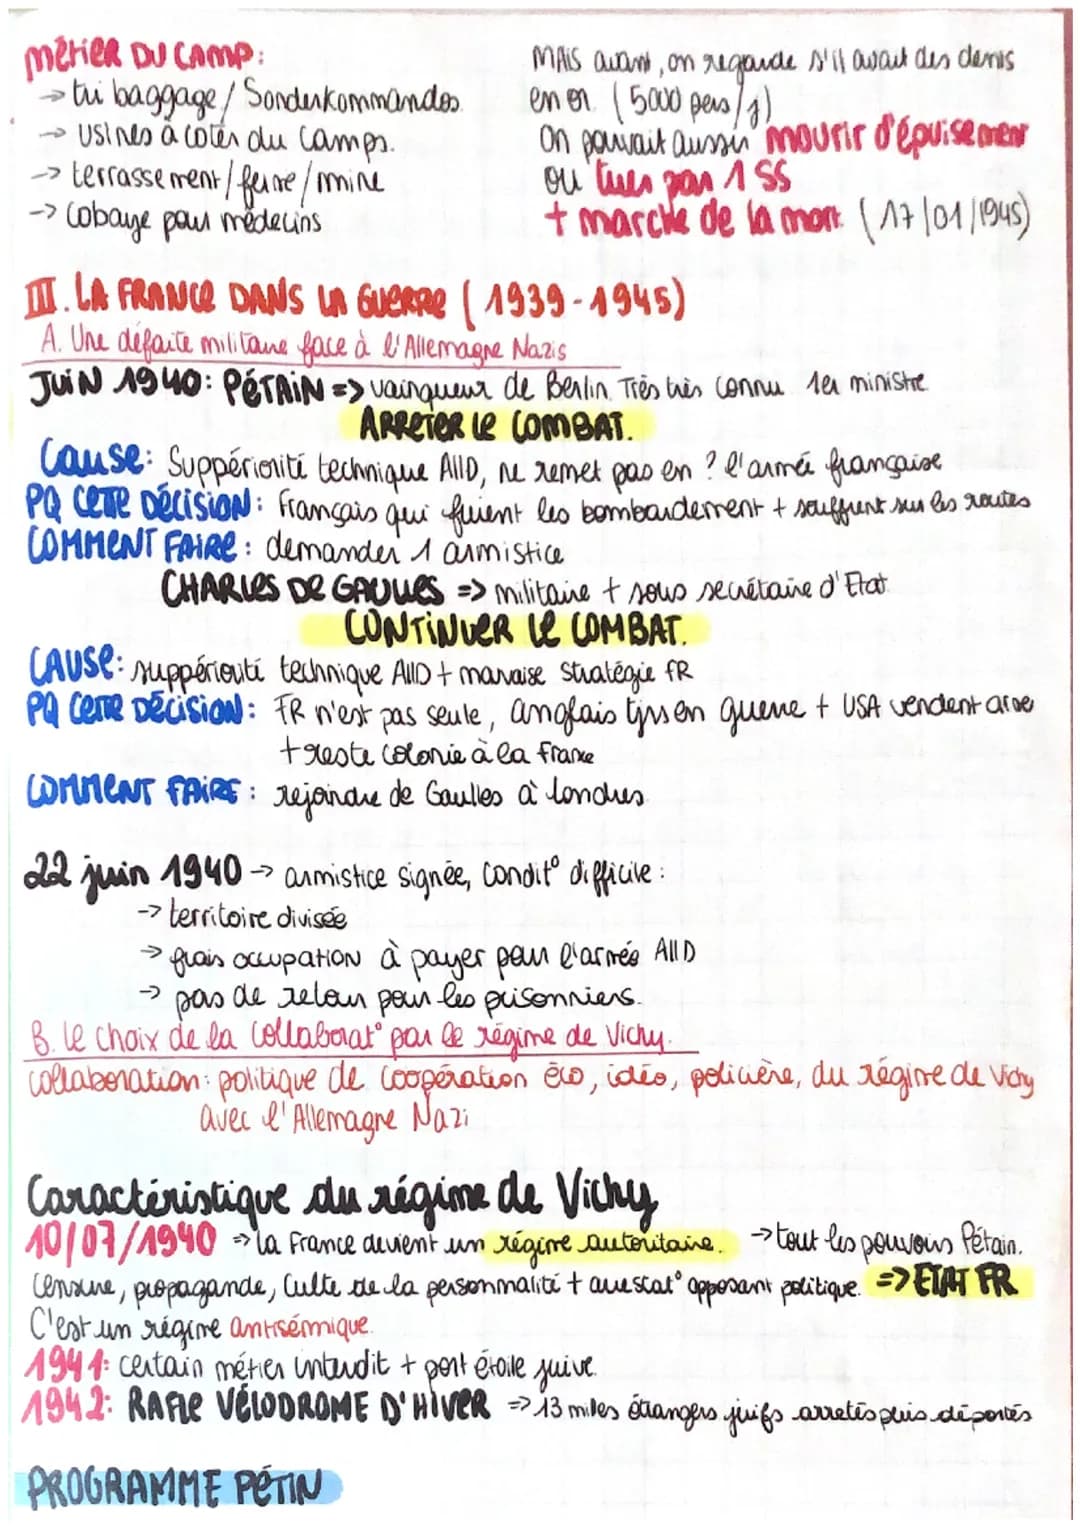 métier DU CAMP:
→ tri baggage / Sonderkommandos.
→ Usines à coter du camps.
→ terrassement / ferme / mine
→ Cobaye pour médecins
MAIS avant, on regarde s'il avait des dents
en or. (5000 pers/j)
On pouvait aussi mourir d'épuisement
ou tues par 1 SS
+ marche de la mort (17/01/1945)
III. LA FRANCE DANS LA GUERRE (1939-1945)
A. Une défaite militaire face à l'Allemagne Nazis
JUIN 1940: PÉTAIN => vainqueur de Berlin. Très très connu 1er ministre
ARRETER LE COMBAT.
Cause: Suppériorité technique AllD, ne remet pas en ? l'armée française
PQ CETTE DÉCISION: Français qui fuient les bombardement + souffrent sur les routes
COMMENT FAIRE: demander 1 armistice
CHARLES DE GAULLES => militaire + sous secrétaire d'Etat
CONTINUER LE COMBAT.
CAUSE: suppériorité technique AllD + mavaise Stratégie FR
PQ CETTE DÉCISION: FR n'est pas seule, anglais tjrs en guerre + USA vendent arme
+ reste colonie à la France
COMMENT FAIRE: rejoindre de Gaulles à Londres.
22 juin 1940 → armistice signée, Condit° difficile:
→ territoire divisée
→ frais occupation à payer pour l'armée AllD
→ pas de retour pour les prisonniers.
B. Le choix de la Collaborat° par le régime de Vichy.
collaboration: politique de Coopération éco, idéo, policière, du régime de Vichy
avec l'Allemagne Nazi
Caractéristique du régime de Vichy
10/07/1940 => La France devient un régime autoritaire. → tout les pouvoirs Pétain.
Censure, propagande, Culte de la personnalité + arrestat° opposant politique. => ETAT FR
C'est un régime antisémique.
1941: certain métier interdit + port étoile juive.
1942: RAFle VÉLODROME D'HIVER => 13 miles étrangers juifs arretés puis déportés
PROGRAMME PÉTIN